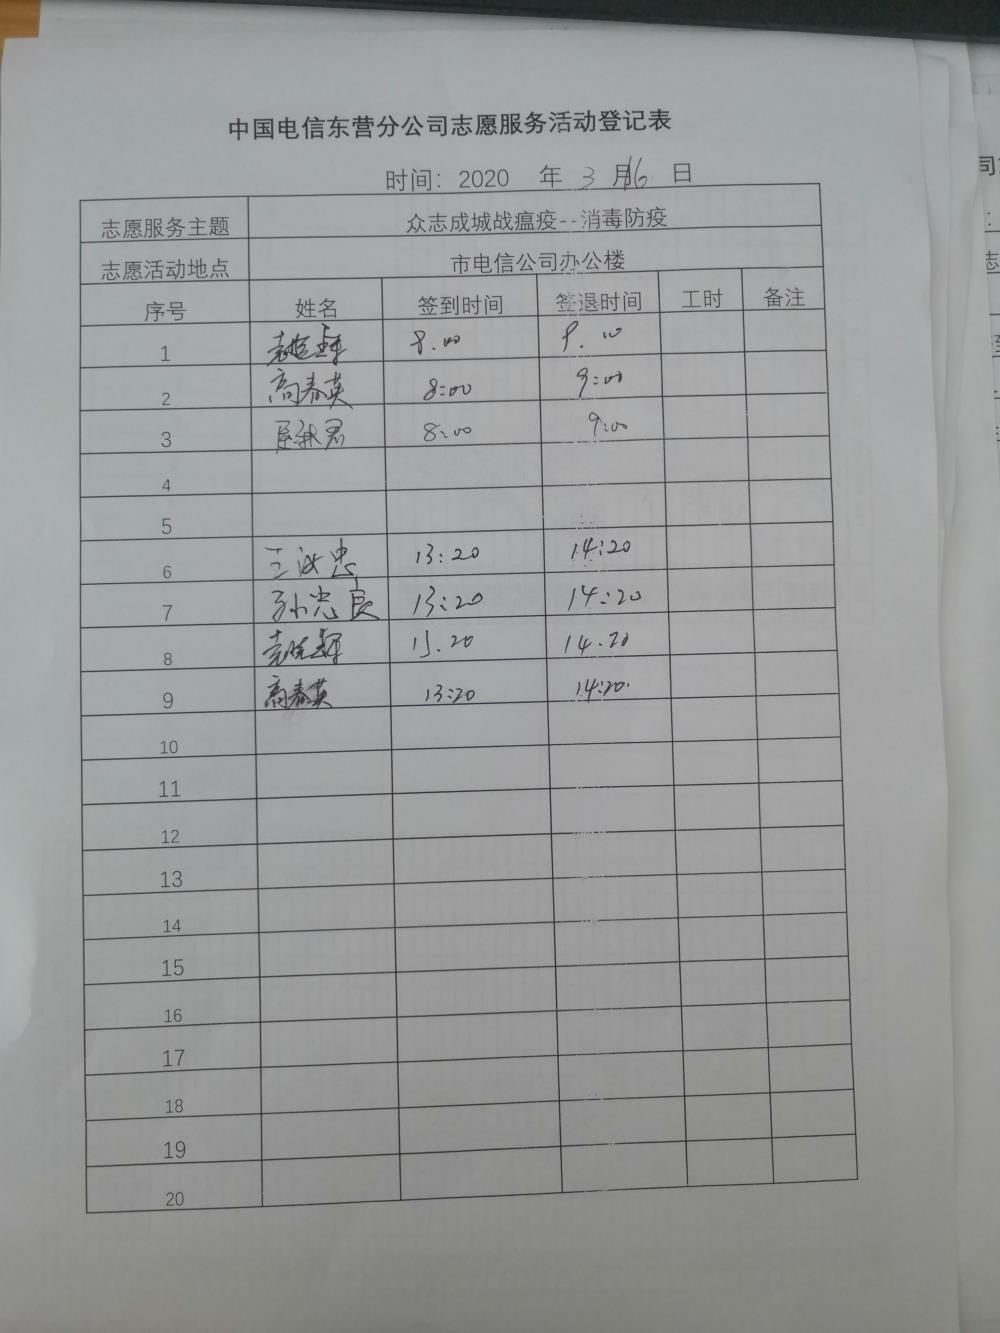 中国电信东营分公司志愿服务活动登记表
时间：2020 年 3 月16 日
志愿服务主题 众志成城战瘟疫--消毒防疫
志愿活动地点 市电信公司办公楼
序号 姓名 签到时间 签退时间 工时 备注
1 8.00 9.00
2 高春英 8:00 9:00
3 8:00 9:00
4
5
6 王汝忠 13:20 14:20
7 孙忠良 13:20 14:20
8 13.20 14.20
9 高春英 13:20 14:20.
10
11
12
13
14
15
16
17
18
19
20